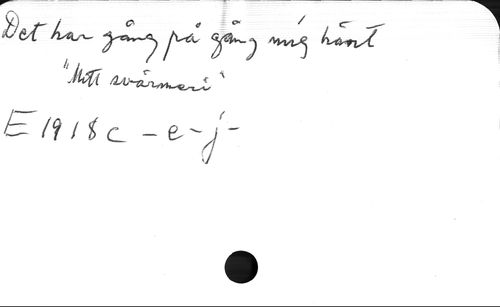 Det har gång på gång mig hänt
"Mitt svärmeri"
E 1918 c - e - j -